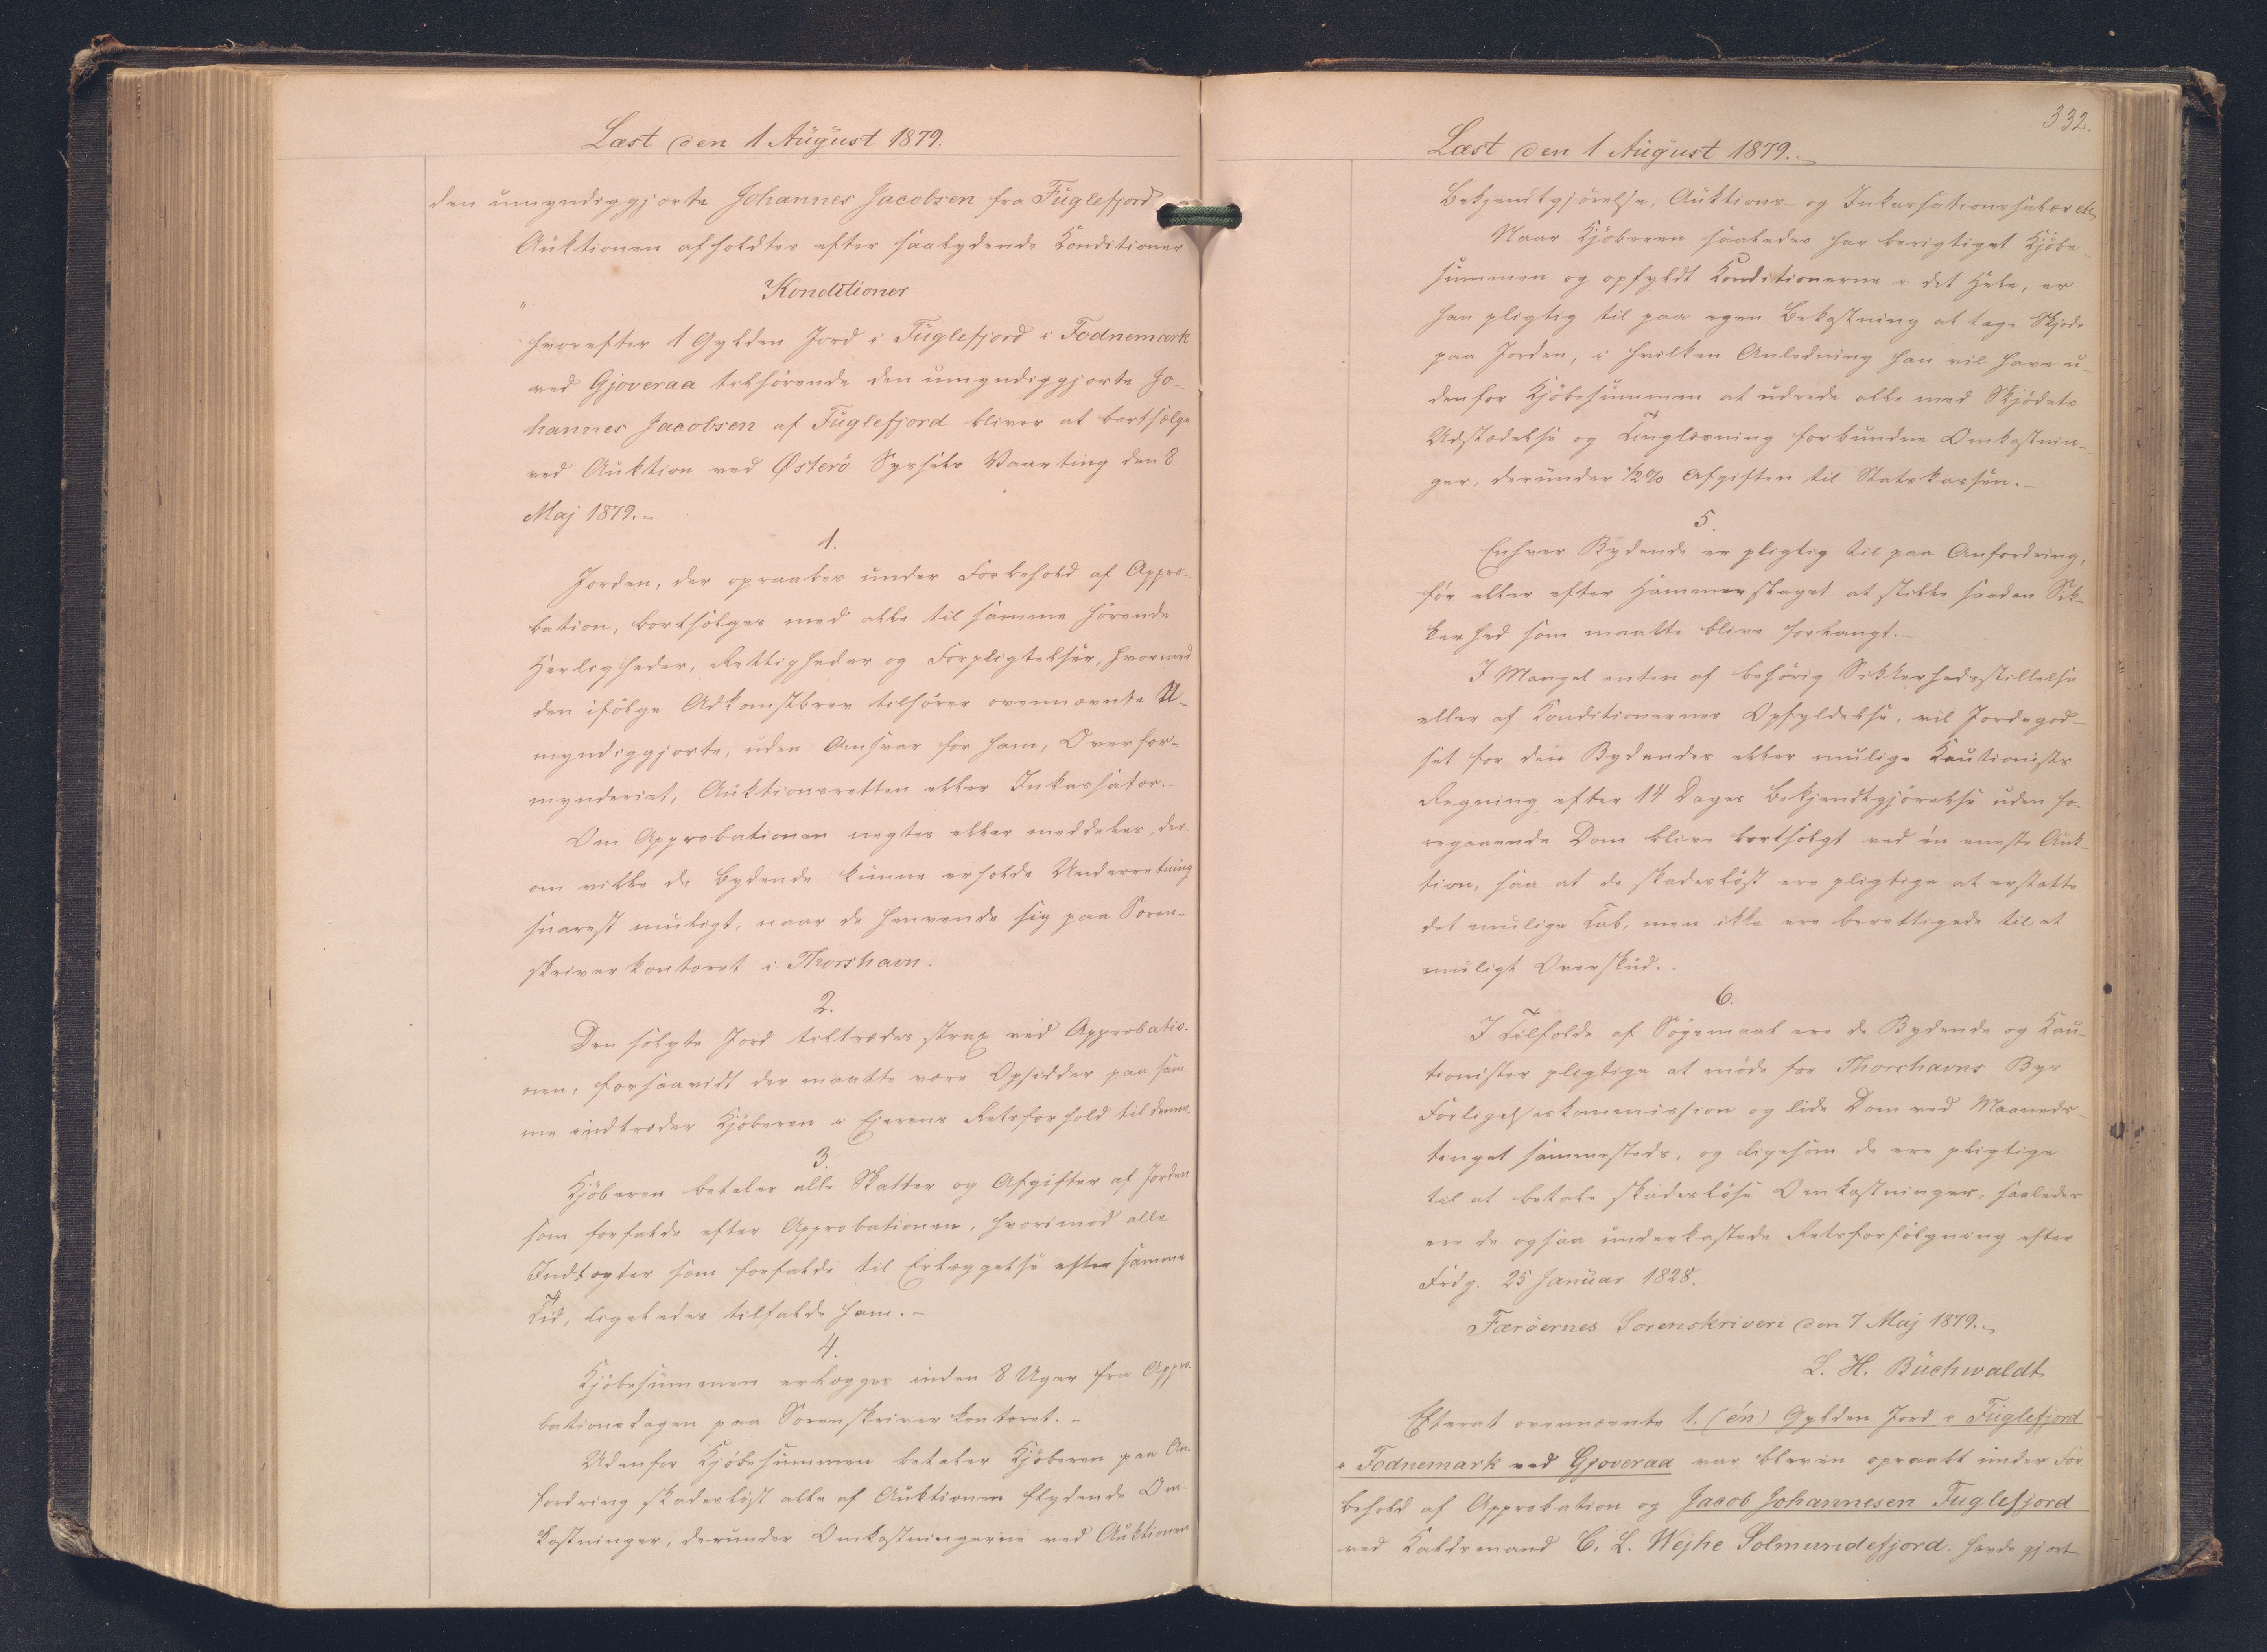 Læst den 1 August 1879.
den umyndiggjorte Johannes Jacobsen fra Fuglefjord
Auktionen afholdtes efter saalydende Konditioner
"
Konditioner
hvorefter 1 Gylden Jord i Fuglefjord i Fodnemark
ved Gjoveraa tilhörende den umyndiggjorte Jo-
hannes Jacobsen af Fuglefjord bliver at bortsælge
ved Auktion ved Österö Syssels Vaarting den 8
Maj 1879.-
1.
Jorden, der opraabes under Forbehold af Appro-
bation, bortsælges med alle til samme hörende
Herligheder, Rettigheder og Forpligtelser, hvormed
den ifölge Adkomstbrev tilhörer ovennævnte U-
myndiggjorte, uden Ansvar for ham, Overfor-
mynderiet, Auktionsretten eller Inkassator.-
Om Approbationen negtes eller meddeles, der-
om ville de Bydende kunne erholde Underretning
snarest muligt, naar de henvende sig paa Soren-
skriverkontoret i Thorshavn.
2.
Den solgte Jord tiltrædes strax ved Approbatio-
nen, forsaavidt der maatte være Opsidder paa sam-
me indtræder Kjöberen i Ejerens Retsforhold til denne.
3.
Kjöberen betaler alle Skatter og Afgifter af Jorden
som forfalde efter Approbationen, hvorimod alle
Indtægter som forfalde til Erlæggelse efter samme
Tid, ligeledes tilfalde ham.-
4.
Kjöbesummen erlægges inden 8 Uger fra Appro-
bationsdagen paa Sorenskriverkontoret.-
Udenfor Kjöbesummen betaler Kjöberen paa An-
fordring skadeslöst alle af Auktionen flydende Om-
kostninger, derunder Omkostningerne ved Auktionen
332.
Læst den 1 August 1879.-
Bekjendtgjörelse, Auktions- og Inkassationssalær etc
Naar Kjöberen saaledes har berigtiget Kjöbe-
summen og opfyldt Konditionerne i det Hele, er
han pligtig til paa egen Bekostning at tage Skjöde
paa Jorden, i hvilken Anledning han vil have u-
denfor Kjöbesummen at udrede alle med Skjödets
Udstædelse og Tinglæsning forbundne Omkostnin-
ger, derunder ½% Afgiften til Statskassen.-
5.
Enhver Bydende er pligtig til paa Anfordring,
för eller efter Hammerslaget at stille saadan Sik-
kerhed som maatte blive forlangt.-
I Mangel enten af behörig Sikkerhedsstillelse
eller af Konditionernes Opfyldelse, vil Jordegod-
set for den Bydendes eller mulige Kautionists
Regning efter 14 Dages Bekjendtgjörelse uden fo-
regaaende Dom blive bortsolgt ved én eneste Auk-
tion, saa at de skadeslöst ere pligtige at erstatte
det mulige Tab, men ikke ere berettigede til et
muligt Overskud.
6.
I Tilfælde af Sögsmaal ere de Bydende og Kau-
tionister pligtige at möde for Thorshavns Byes
Forligelseskommission og lide Dom ved Maaneds-
tinget sammesteds, og ligesom de ere pligtige
til at betale skadeslöse Omkostninger, saaledes
ere de ogsaa underkastede Retsforfölgning efter
Frdg. 25 Januar 1828.
Færöernes Sorenskriveri den 7 Maj 1879.-
L. H. Buchwaldt
Efterat ovennævnte 1. (én) Gylden Jord i Fuglefjord
i Fodnemark ved Gjoveraa var bleven opraabt under For-
behold af Approbation og Jacob Johannesen Fuglefjord
ved Kaldsmand C. L. Wejhe Solmundefjord. havde gjort